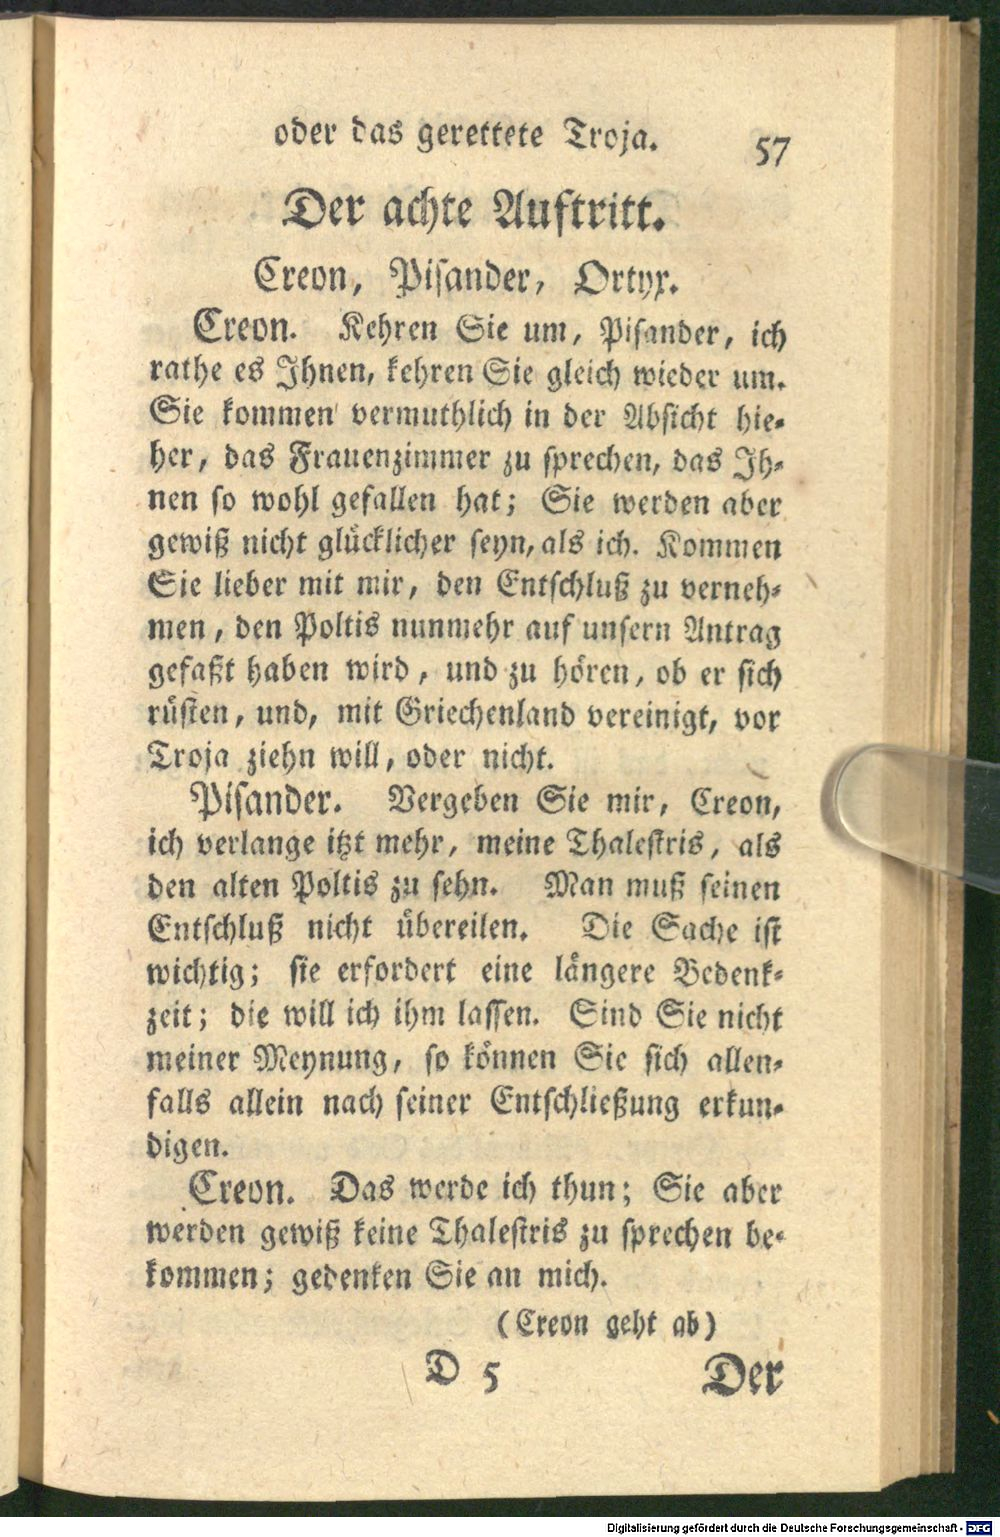 oder das gerettete Troja. 57
Der achte Auftritt.
Creon, Pisander, Ortyx.
Creon. Kehren Sie um, Pisander, ich
rathe es Ihnen, kehren Sie gleich wieder um.
Sie kommen vermuthlich in der Absicht hie-
her, das Frauenzimmer zu sprechen, das Ih-
nen so wohl gefallen hat; Sie werden aber
gewiß nicht glücklicher seyn, als ich. Kommen
Sie lieber mit mir, den Entschluß zu verneh-
men, den Poltis nunmehr auf unsern Antrag
gefaßt haben wird, und zu hören, ob er sich
rüsten, und, mit Griechenland vereinigt, vor
Troja ziehn will, oder nicht.
Pisander. Vergeben Sie mir, Creon,
ich verlange itzt mehr, meine Thalestris, als
den alten Poltis zu sehn. Man muß seinen
Entschluß nicht übereilen. Die Sache ist
wichtig; sie erfordert eine längere Bedenk-
zeit; die will ich ihm lassen. Sind Sie nicht
meiner Meynung, so können Sie sich allen-
falls allein nach seiner Entschließung erkun-
digen.
Creon. Das werde ich thun; Sie aber
werden gewiß keine Thalestris zu sprechen be-
kommen; gedenken Sie an mich.
(Creon geht ab)
D 5 Der
Digitalisierung gefördert durch die Deutsche Forschungsgemeinschaft - DFG